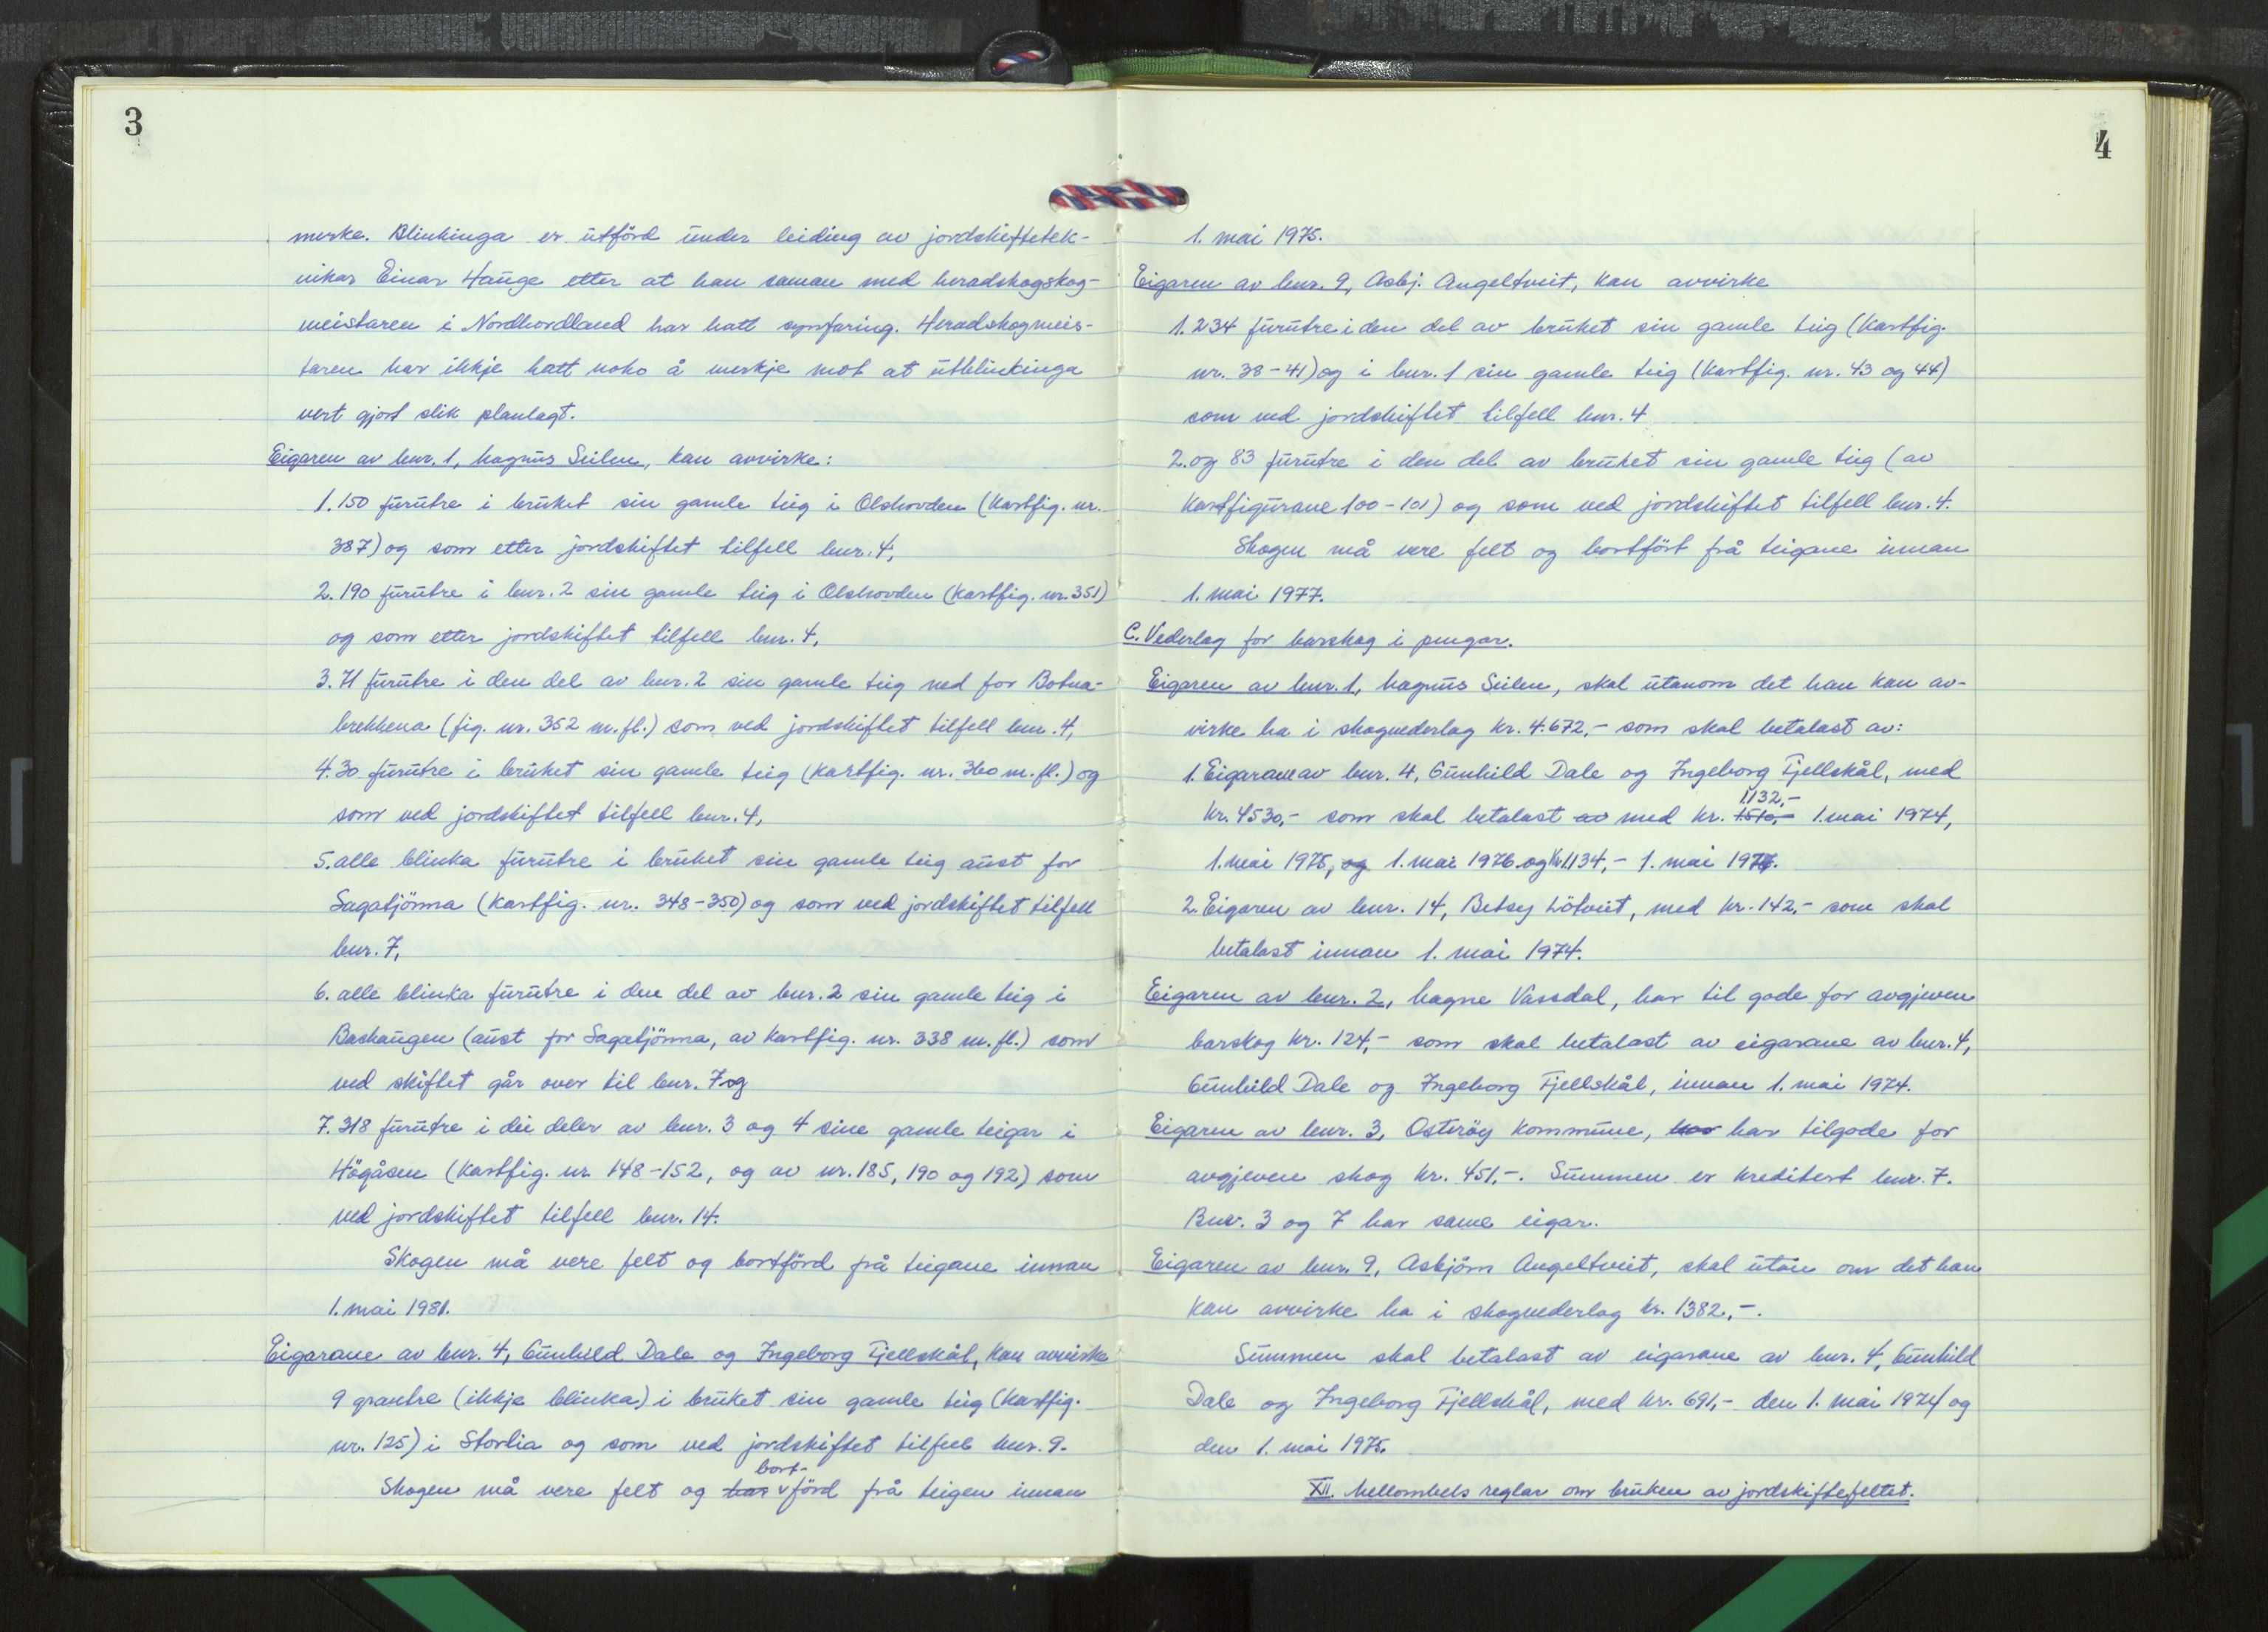 3
merke. Blinkinga er utförd under leiding av jordskiftetek-
nikar Einar Hauge etter at han saman med heradskogskog-
meistaren i Nordhordland har hatt synfaring. Heradskogmeis-
taren har ikkje hatt noko å merkje mot at utblinkinga
vert gjort slik planlagt.
Eigaren av bnr. 1, Magnus Seilen, kan avvirke:
1. 150 furutre i bruket sin gamle teig i Olshovden (Kartfig. nr.
387) og som etter jordskiftet tilfell bnr. 4,
2. 190 furutre i bnr. 2 sin gamle teig i Olshovden (Kartfig. nr. 351)
og som etter jordskiftet tilfell bnr. 4,
3. 71 furutre i den del av bnr. 2 sin gamle teig ned for Botna-
brekkena (fig. nr. 352 m.fl.) som ved jordskiftet tilfell bnr. 4,
4. 30 furutre i bruket sin gamle teig (Kartfig. nr. 360 m.fl.) og
som ved jordskiftet tilfell bnr. 4,
5. alle blinka furutre i bruket sin gamle teig aust for
Sagatjönna (Kartfig. nr. 348-350) og som ved jordskiftet tilfell
bnr. 7,
6. alle blinka furutre i den del av bnr. 2 sin gamle teig i
Bashaugen (aust for Sagatjönna, av Kartfig. nr. 338 m.fl.) som
ved skiftet går over til bnr. 7 og
7. 318 furutre i dei deler av bnr. 3 og 4 sine gamle teigar i
Högåsen (Kartfig. nr. 148-152, og av nr. 185, 190 og 192) som
ved jordskiftet tilfell bnr. 14.
Skogen må vere felt og bortförd frå teigane innan
1. mai 1981.
Eigarane av bnr. 4, Gunhild Dale og Ingeborg Fjellskål, kan avvirke
9 grantre (ikkje blinka) i bruket sin gamle teig (Kartfig.
nr. 125) i Storlia og som ved jordskiftet tilfell bnr. 9.
bort-
Skogen må vere felt og har förd frå teigen innan
4
1. mai 1975.
Eigaren av bnr. 9, Asbj. Angeltveit, kan avvirke
1. 234 furutre i den del av bruket sin gamle teig (Kartfig.
nr. 38-41) og i bnr. 1 sin gamle teig (Kartfig. nr. 43 og 44)
som ved jordskiftet tilfell bnr. 4
2. og 83 furutre i den del av bruket sin gamle teig (av
Kartfigurane 100-101) og som ved jordskiftet tilfell bnr. 4.
Skogen må vere felt og bortfört frå teigane innan
1. mai 1977.
C. Vederlag for barskog i pengar.
Eigaren av bnr. 1, Magnus Seilen, skal utanom det han kan av-
virke ha i skogvederlag kr. 4.672,- som skal betalast av:
1. Eigarane av bnr. 4, Gunhild Dale og Ingeborg Fjellskål, med
1132,-
kr. 4530,- som skal betalast av med kr. 1510,- 1. mai 1974,
1. mai 1975, og 1. mai 1976 og kr 1134,- 1. mai 1977.
2. Eigaren av bnr. 14, Betsy Lötveit, med kr. 142,- som skal
betalast innan 1. mai 1974.
Eigaren av bnr. 2, Magne Vassdal, har til gode for avgjeven
barskog kr. 124,- som skal betalast av eigarane av bnr. 4,
Gunhild Dale og Ingeborg Fjellskål, innan 1. mai 1974.
Eigaren av bnr. 3, Osteröy kommune, har har tilgode for
avgjeven skog kr. 451,-. Summen er kreditert bnr. 7.
Bnr. 3 og 7 har same eigar.
Eigaren av bnr. 9, Asbjörn Angeltveit, skal utan om det han
kan avvirke ha i skogvederlag kr. 1382,-.
Summen skal betalast av eigarane av bnr. 4, Gunhild
Dale og Ingeborg Fjellskål, med kr. 691,- den 1. mai 1974 og
den 1. mai 1975.
XII. Mellombels reglar om bruken av jordskiftefeltet.